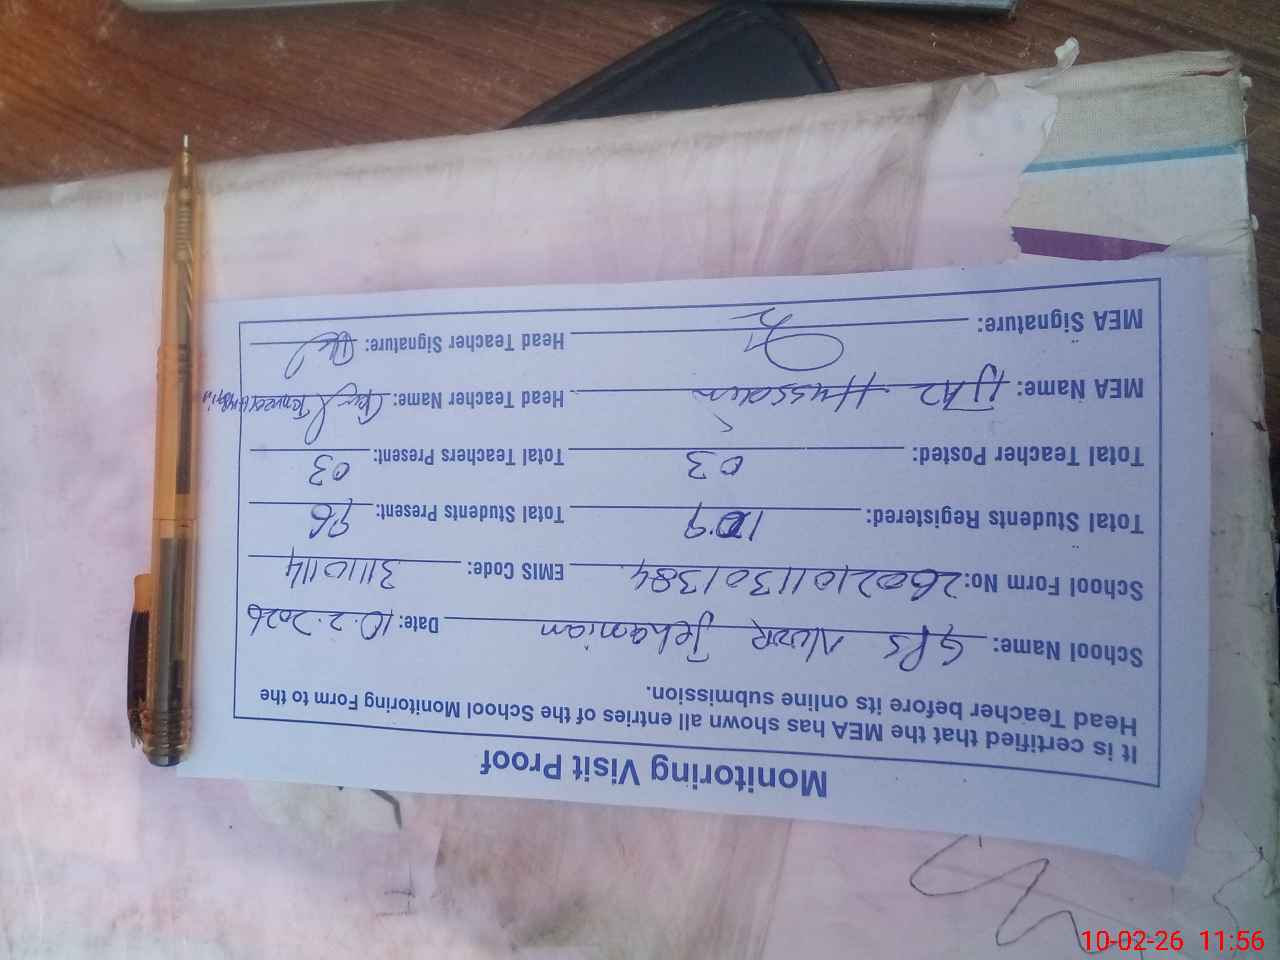 Monitoring Visit Proof
It is certified that the MEA has shown all entries of the School Monitoring Form to the
Head Teacher before its online submission.
School Name: GPS Noor Jehanian Date: 10.2.2026
School Form No: 26021011301384 EMIS Code: 31110114
Total Students Registered: 109 Total Students Present: 96
Total Teacher Posted: 03 Total Teachers Present: 03
MEA Name: IJAZ Hussain Head Teacher Name:
MEA Signature: Head Teacher Signature:
10-02-26 11:56